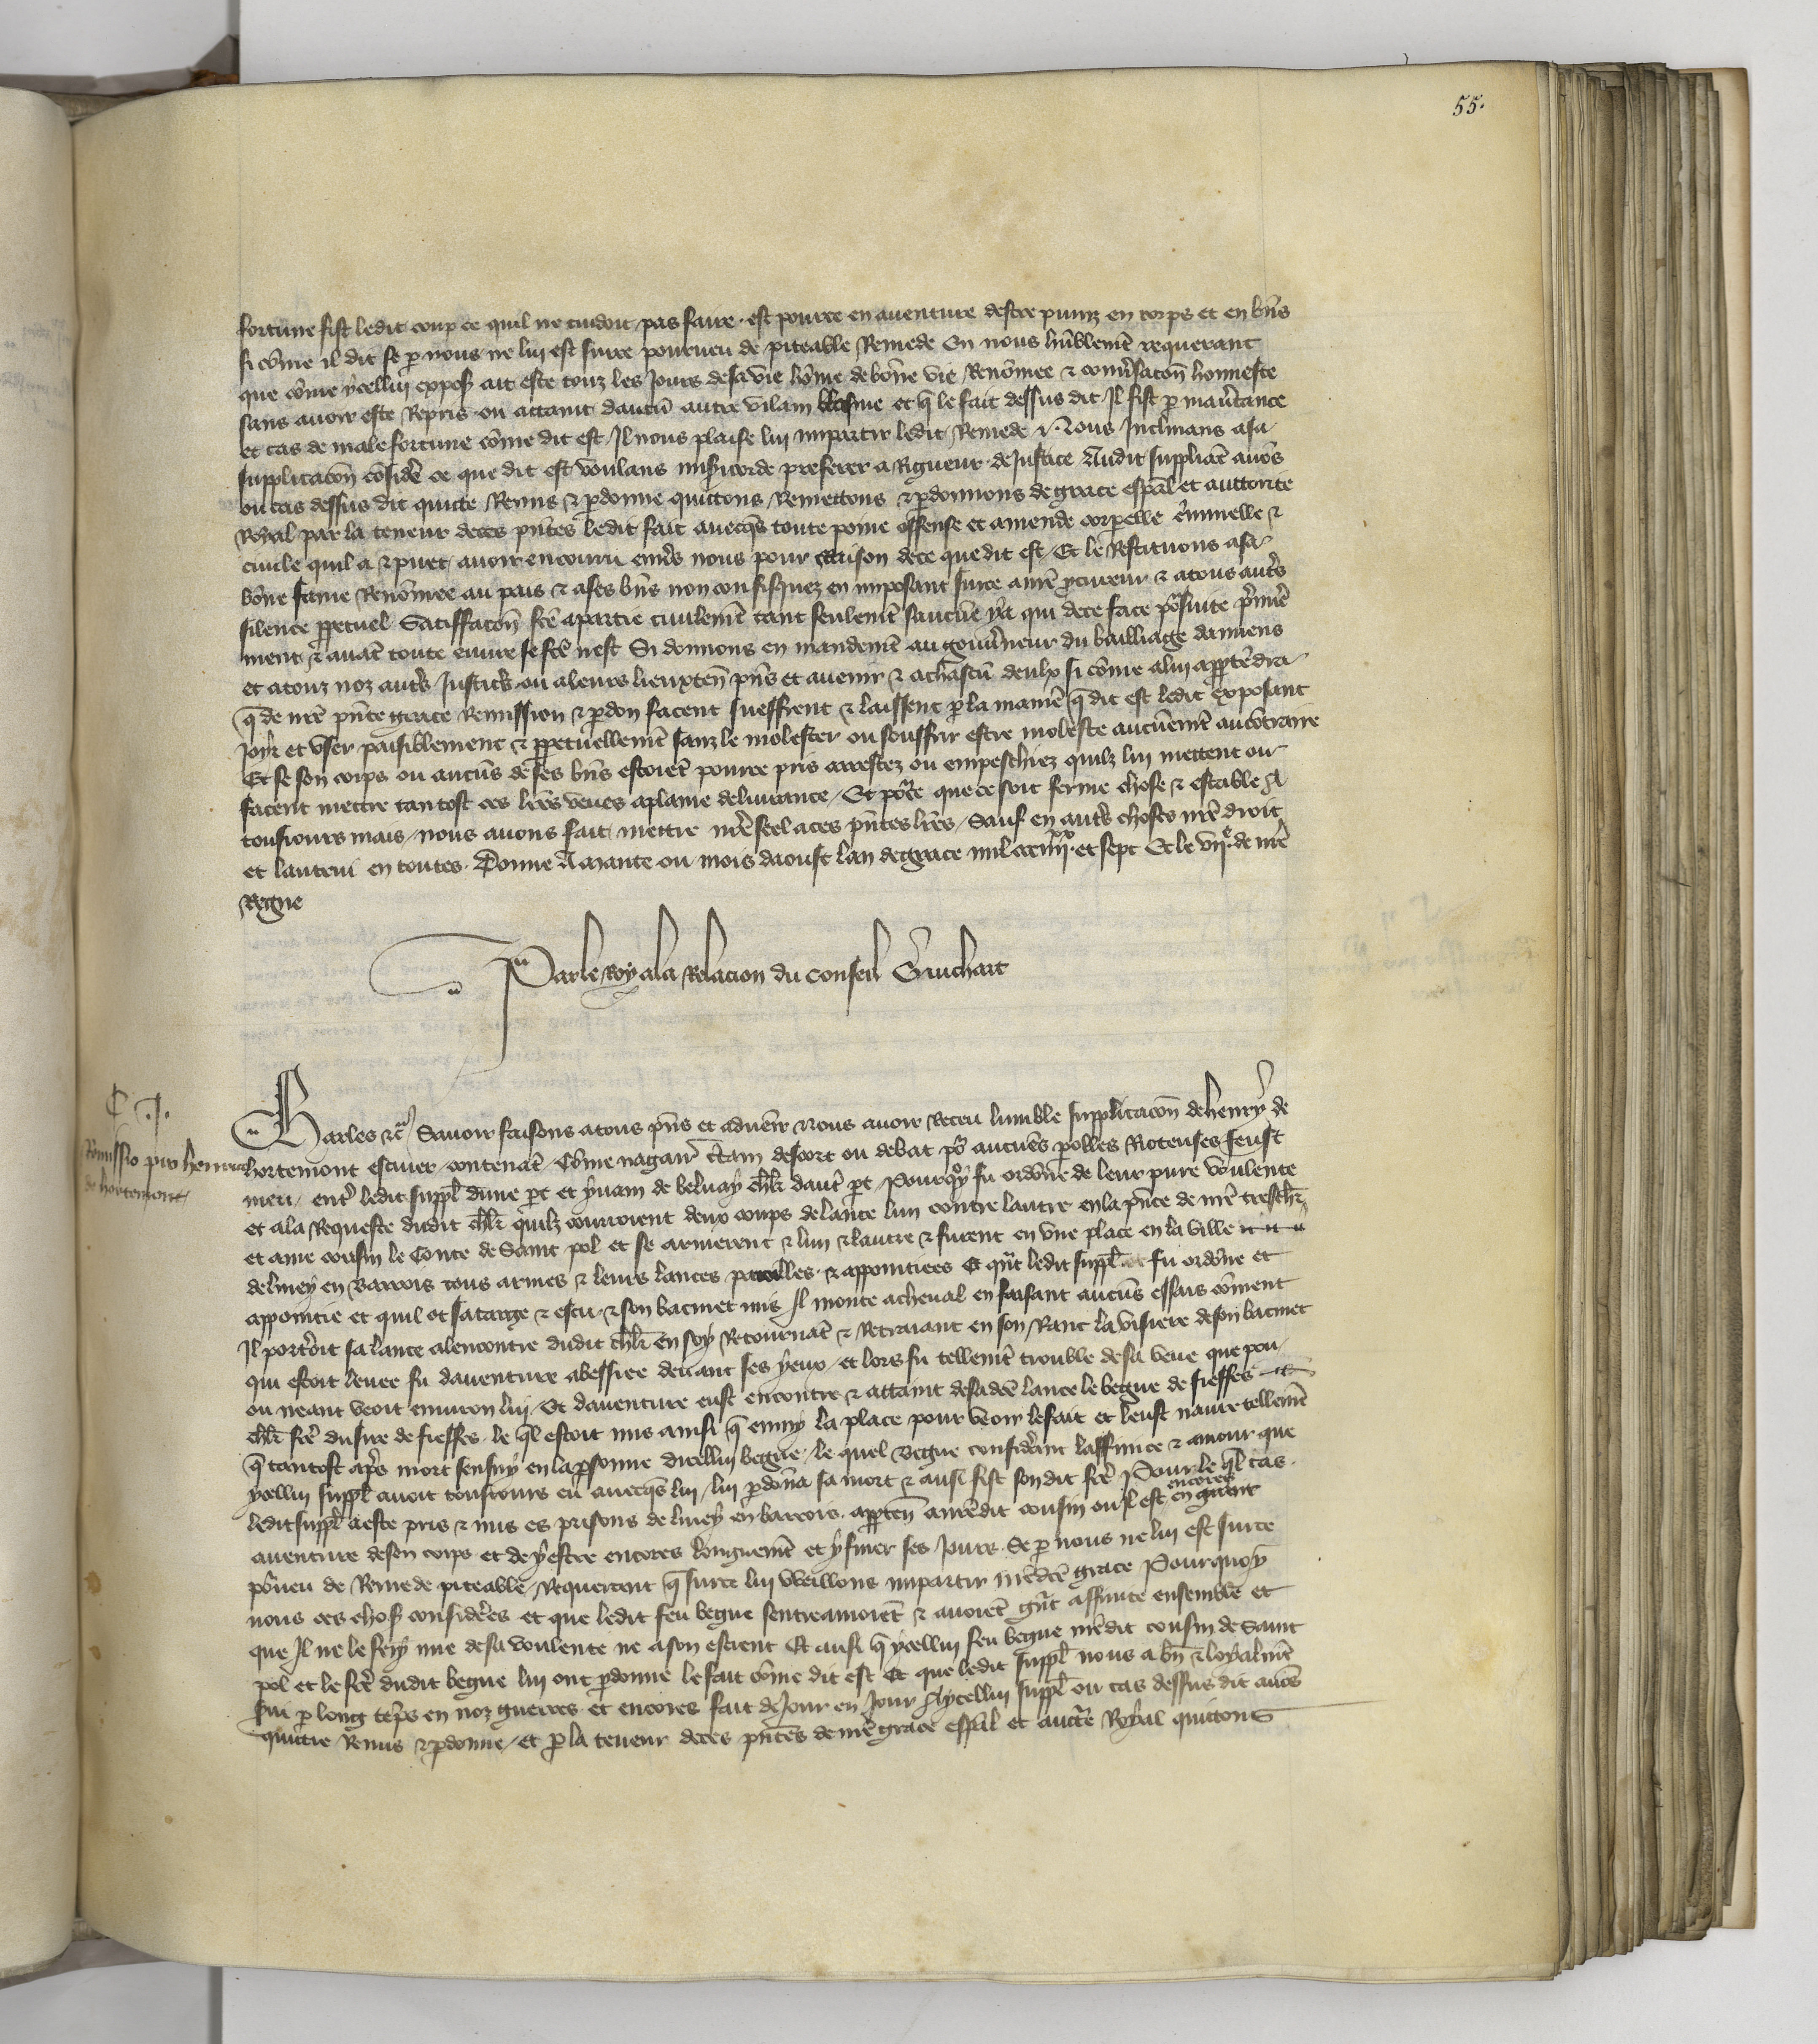 55.
fortune fist ledit coup ce quil ne cuidoit pas faire . est pource en aventure destre puniz en corps et en bn̄s
si cōme il dit se ꝑ nous ne lui est surce pourveu de piteable Remede En nous hūblemēt requerant
que cōme ycellui exposāt ait este touz les jours de sa vie hōme de bōne vie Renōmee & cōnv̄sacōn honneste
sans avoir este Repris ou attaint daucū autre vilain blasme et q̄ le fait dessus dit Il fist ꝑ
et cas de male fortune cōme dit est Il nous plaise lui impartir ledit Remede / Nous Inclinans a sa
supplicacōn cōsidere ce que dit est voulans misericorde preferer a Rigueur de Justice Audit suppliāt avōs
ou cas dessus dit quicte Remis & ꝑdonne quictons Remettons & ꝑdonnons de grace esp̄al et auctorite
Royal par la teneur de ces pn̄tes ledit fait avecqs toute poine offense et amende corporelle c̄minelle &
civile quil a & puet avoir encouru env̄s nous pour Raison de ce que dit est / Et le Restituons a sa
bōne fame Renōmee au pais & a ses bn̄s non confisquez en imposant surce a nr̄e ꝓcureur & a tous aut̄s
silence ꝑpetuel Satiffacōn fc̄e a partie civilemēt tant seulemēt saucūe y a qui de ce face pōsuite p̄mie
ment & avāt toute euvre se fc̄e nest Si donnons en mandemēt au gouv̄neur du bailliage damiens
et a touz noz autr̄s Justic̄s ou a leurs lieuxten̄ pn̄s et avenir & a chascū deulx si cōme a lui appt̄edra
q̄ de nr̄e pn̄te grace Remission & ꝑdon facent sueffrent & laissent ꝑ la maniē q̄ dit est ledit exposant
joir et user paisiblement & ꝑpetuellemēt sanz le molester ou souffrir estre moleste aucūemēt au cōtraire
Et se son corps ou aucūs de ses bn̄s estoiēt pource pris arrestez ou empeschiez quilz lui mettent ou
facent mettre tantost ces lr̄es veues a plaine delivrance / Et pōce que ce soit ferme chose & estable A
tousjours mais / nous avons fait mettre nr̄e seel a ces pn̄tes lr̄es / Sauf en autr̄s choses nr̄e droit
et lautrui en toutes . Donne A mante ou mois daoust lan de grace mil ccciiijˣˣ. et sept Et le viiᵉ. de nr̄e
Regne
Par le Roy a la Relacion du conseil Guichart
C .J.
Remissio pro henrico
de hortemont
Charles &c̄ Savoir faisons a tous pn̄s et advenir Nous avoir Receu lumble supplicacōn de henry de
hortemont escuier / contenāt / Cōme nagair̄ c̄tain descort ou debat pō aucuēs ꝑolles Rioteuses feust
meu / entr̄ ledit suppl̄ dune ꝑt et yvain de beluay ch̄lr dautr̄ ꝑt / Pourqȳ fu ordōne de leur pure voulente
et a la Requeste dudit ch̄lr quilz courroient deux coups de lance lun contre lautre en la pn̄ce de nr̄e tresch̄r
et ame cousin le Conte de Saint pol et se armerent & lun & lautre & furent en une place en la ville
de liney en Barrois tous armes & leurs lances pareilles & appointiees Et qn̄t ledit suppl̄ fu ordōne et
appointie et quil ot sa targe & escu & son bacinet mis Il monte a cheval en faisant aucūs essais cōment
Il portoit sa lance alencontre dudit ch̄lr en soy Retournāt & Retraiant en son Ranc la visiere de son bacinet
qui estoit levee fu daventure abessiee devant ses yeux / et lors fu tellemēt trouble de sa veue que pou
ou neant veoit environ lui / Et daventure eust encontre & attaint de sad̄ce lance le begue de fieffes
ch̄lr fr̄e du sire de fieffes . le ql̄ estoit mis ainsi q̄ enmy la place pour veoir le fait et leust navre tellemēt
q̄ tantost apr̄s mort sensuy en la ꝑsonne dicellui begue / le quel Begue consid̄ant laffinite & amour que
ycellui suppl̄ avoit tousjours eu avecqs lui / lui ꝑdōna sa mort & ausi fist sondit fr̄e Pour le ql̄ cas
ledit suppl̄ a este pris & mis es prisons de liney en barrois . appten̄ a nr̄edit cousin ou il est encores en grant
aventure de son corps et de y estre encores longuemēt et y finer ses jours . Se ꝑ nous ne lui est surce
pōveu de Remede piteable / Requerent q̄ surce lui vueillons impartir nr̄ed̄ce grace Pourquoy
nous ces chos̄ considerees et que ledit feu begue sentreamoiēt & avoiēt gn̄t affinite ensemble et
que Il ne le fery mie de sa voulente ne a son escient Et ausi q̄ ycellui feu begue nr̄edit cousin de Saint
pol et le fr̄e dudit begue lui ont ꝑdonne le fait cōme dit est Et que ledit suppl̄ nous a bn̄ & loyalmēt
servi ꝑ long tēps en noz guerres et encores fait de Jour en Jour Aycellui suppl̄ ou cas dessus dit avōs
quictie Remis & ꝑdonne / et ꝑ la teneur de ces pn̄tes de nr̄e grace esp̄al et auct̄te Royal quictons